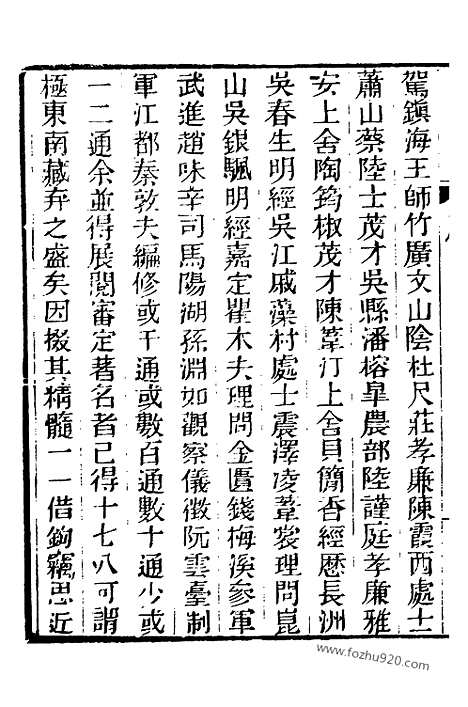 駕鎮海王師竹廣文山陰杜尺莊孝廉陳霞西處士
蕭山蔡陸士茂才吳縣潘榕皐農部陸謹庭孝廉雅
安上舍陶筠椒茂才陳葦汀上舍貝簡香經歷長洲
吳春生明經吳江戚藻村處士震澤凌葦裳理問崑
山吳銀颿明經嘉定瞿木夫理問金匱錢梅溪參軍
武進趙味辛司馬陽湖孫淵如觀察儀徵阮雲臺制
軍江都秦敦夫編修或千通或數百通數十通少或
一二通余並得展閱審定著名者已得十七八可謂
極東南藏弆之盛矣因掇其精髓一一借鉤竊思近
www.fozhu920.com